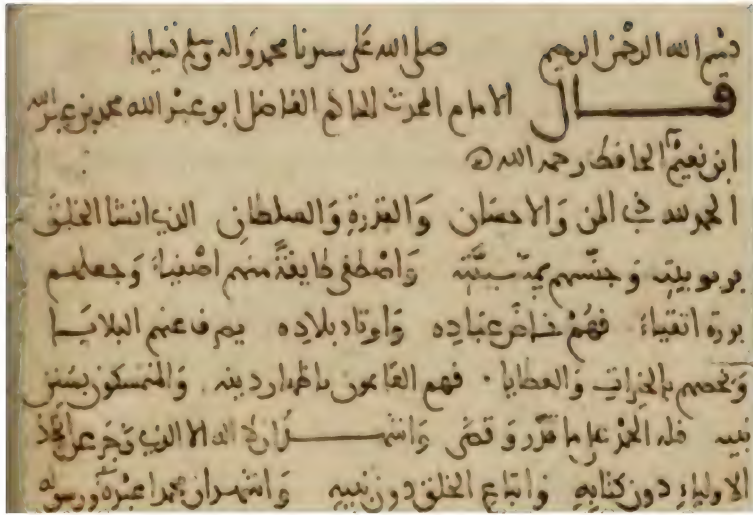 بسم الله الرحمن الرحيم صلى الله على سيدنا محمد واله وسلم تسليما
قال الامام المحدث العالم الفاضل ابو عبد الله محمد بن عبد الله
ابن نعيم الحافظ رحمه الله
الحمد لله ذي المن والاحسان والقدرة والسلطان الذي انشا الخلق
بربوبيته وجنسهم بمشيئته واصطفى طايفة منهم اصفياء وجعلهم
بررة اتقياء فهم خواص عباده واوتاد بلاده يصرف عنهم البلايا
ويخصهم بالخيرات والعطايا فهم القائمون باظهار دينه والمتمسكون بسنن
نبيه فله الحمد على ما قدر وقضى واشهد ان لا اله الا الذي زجر عن اتخاذ
الاولياء دون كتابه واتباع الخلق دون نبيه واشهد ان محمدا عبده ورسوله